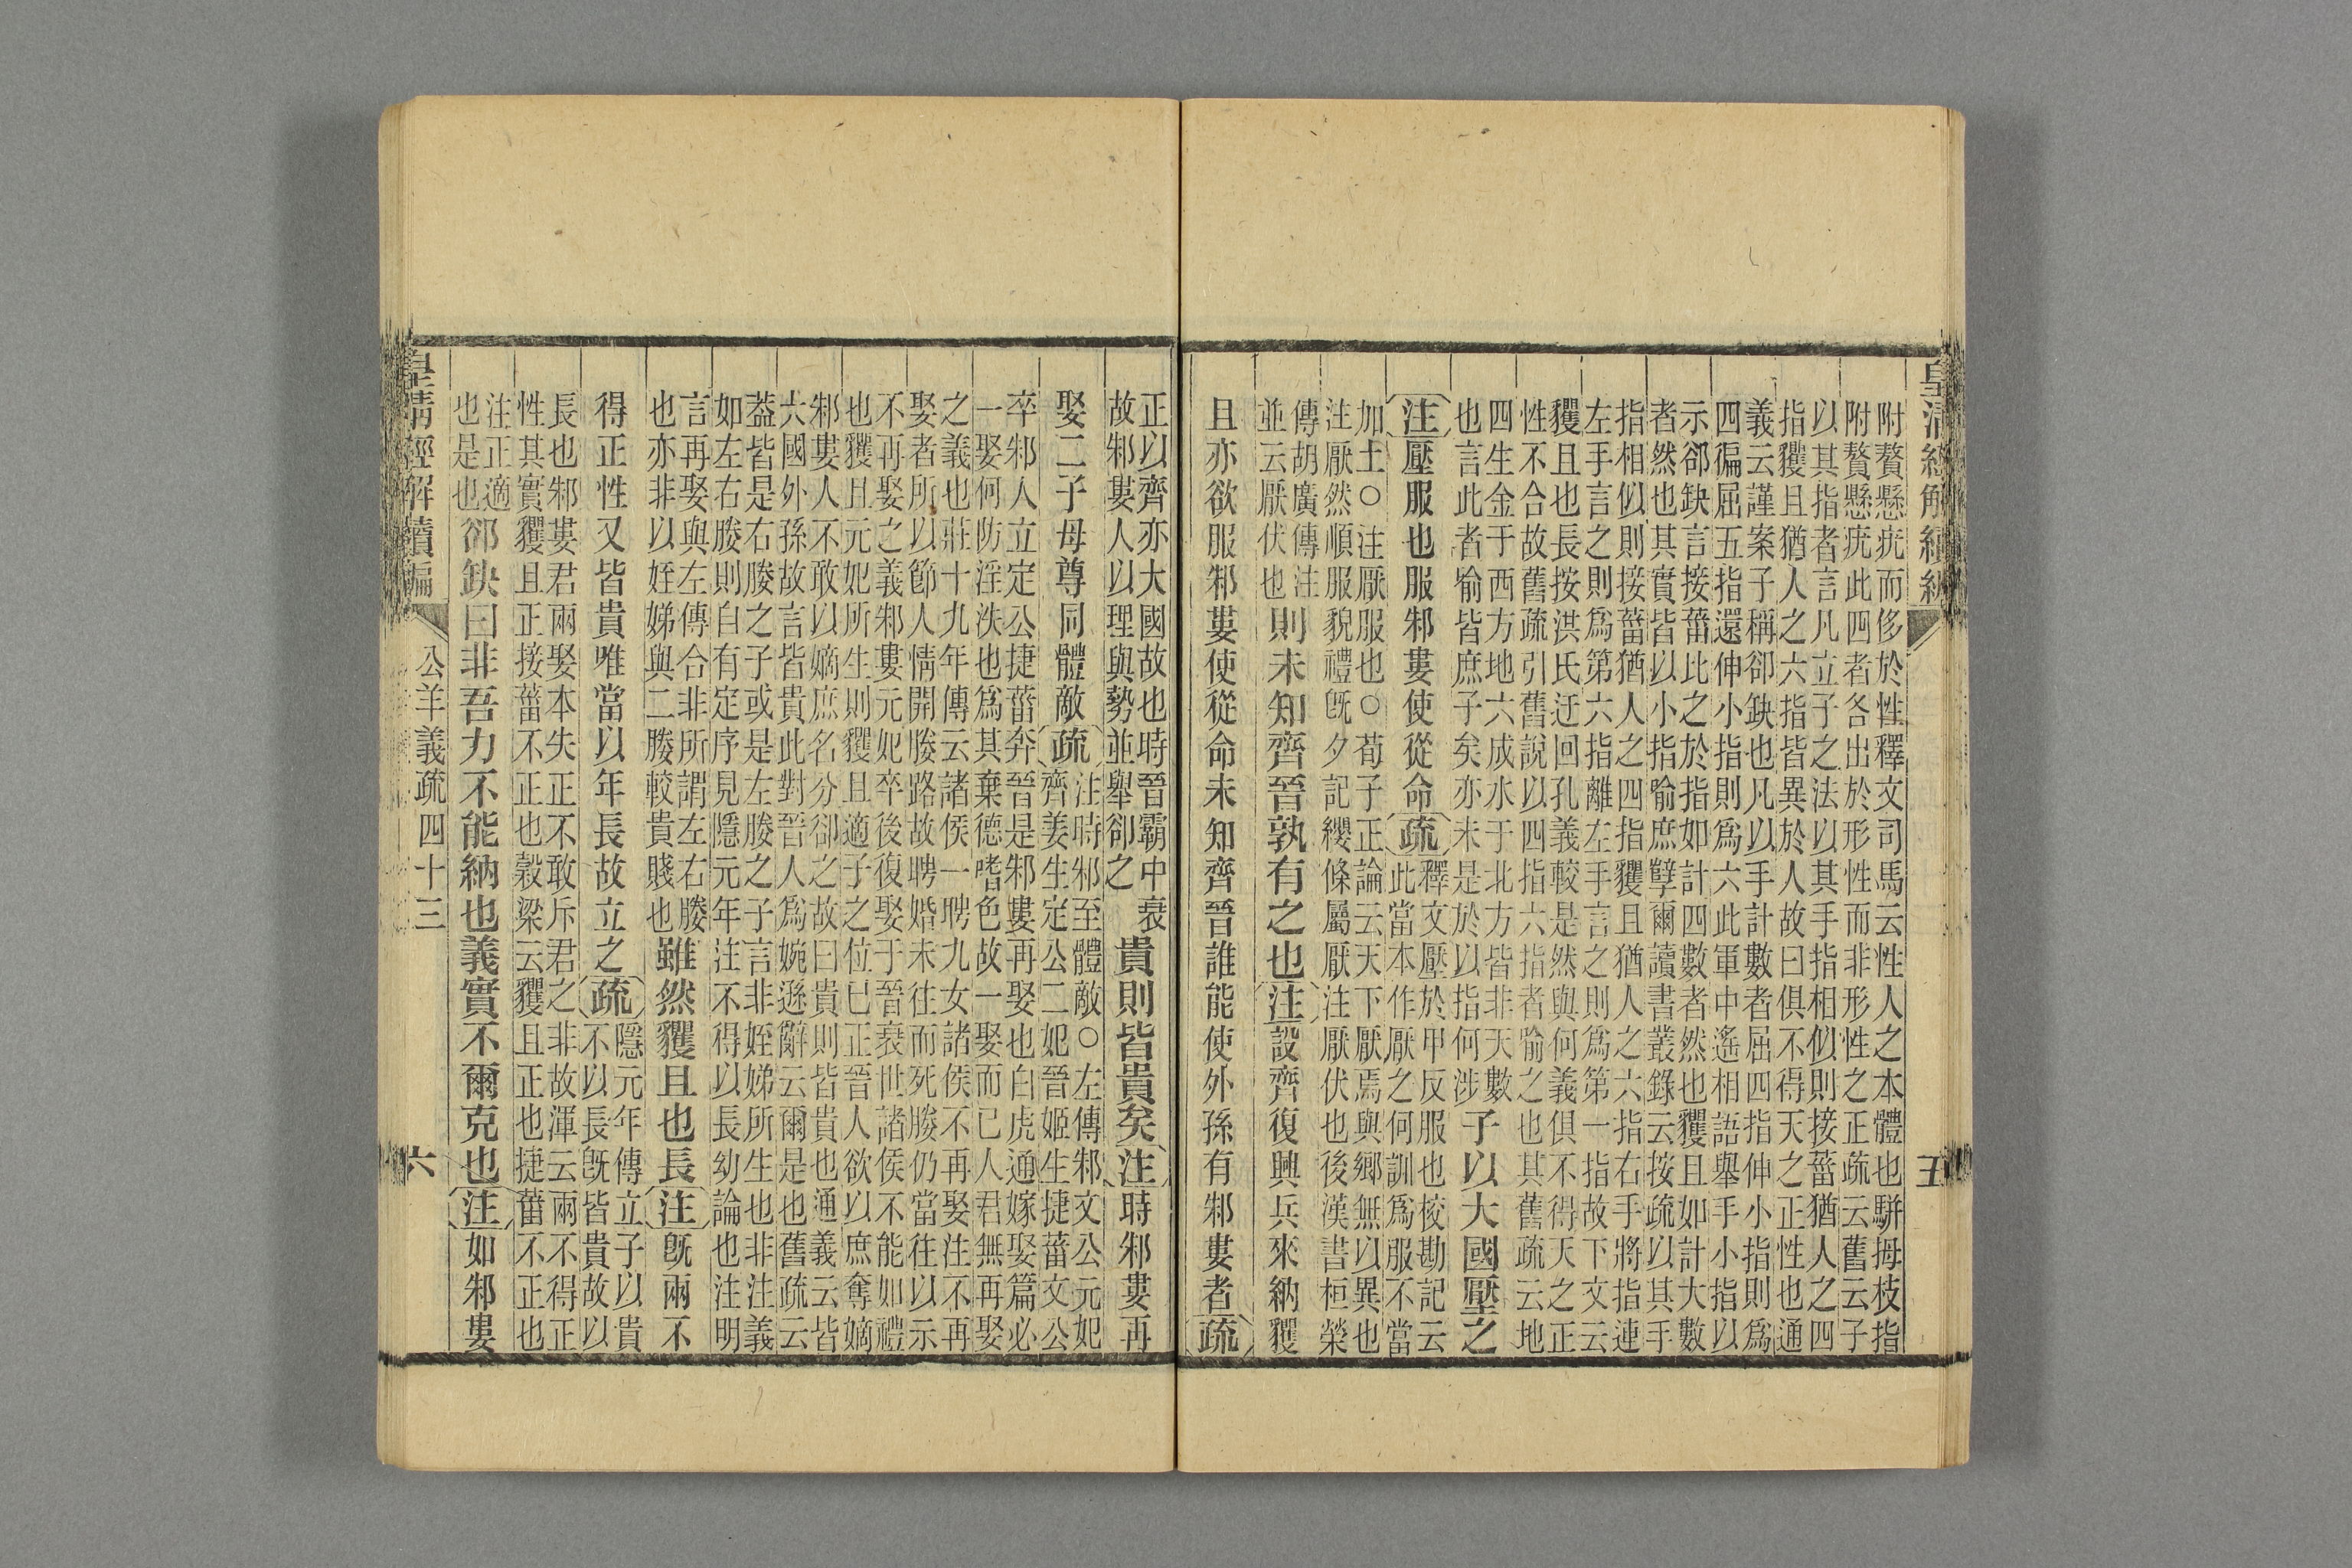 皇清經解續編
五
附贅懸疣而侈於性釋文司馬云性人之本體也駢拇枝指
附贅懸疣此四者各出於形性而非形性之正疏云舊云子
以其指者言凡立子之法以其手指相似則接菑猶人之四
指貜且猶人之六指皆異於人故曰俱不得天之正性也通
義云謹案子稱郤缺也凡以手計數者屈四指伸小指則爲
四徧屈五指還伸小指則爲六此軍中遙相語舉手小指以
示郤缺言接菑比之於指如計四數者然也貜且如計大數
者然也其實皆以小指喻庶孽爾讀書叢錄云按疏以其手
指相似則接菑猶人之四指貜且猶人之六指右手將指連
左手言之則爲第六指離左手言之則爲第一指故下文云
貜且也長按洪氏迂回孔義較是然與何義俱不得天之正
性不合故舊疏引舊說以四指六指者喻之也其舊疏云地
四生金于西方地六成水于北方皆非天數
也言此者喻皆庶子矣亦未是於以指何涉
子以大國壓之
注壓服也服邾婁使從命疏
釋文壓於甲反服也校勘記云
此當本作厭之何訓爲服不當
加土○注厭服也○荀子正論云天下厭焉與鄉無以異也
注厭然順服貌禮旣夕記纓條屬厭注厭伏也後漢書桓榮
傳胡廣傳注
並云厭伏也
則未知齊晉孰有之也注設齊復興兵來納貜
且亦欲服邾婁使從命未知齊晉誰能使外孫有邾婁者疏
正以齊亦大國故也時晉霸中衰
故邾婁人以理與勢並舉郤之
貴則皆貴矣注時邾婁再
娶二子母尊同體敵疏
注時邾至體敵○左傳邾文公元妃
齊姜生定公二妃晉姬生捷菑文公
卒邾人立定公捷菑奔晉是邾婁再娶也白虎通嫁娶篇必
一娶何防淫泆也爲其棄德嗜色故一娶而已人君無再娶
之義也莊十九年傳云諸侯一聘九女諸侯不再娶注不再
娶者所以節人情開媵路故聘婚未往而死媵仍當往以示
不再娶之義邾婁元妃卒後復娶于晉衰世諸侯不能如禮
也貜且元妃所生則貜且適子之位已正晉人欲以庶奪嫡
邾婁人不敢以嫡庶名分郤之故曰貴則皆貴也通義云皆
大國外孫故言皆貴此對晉人爲婉遜辭云爾是也舊疏云
葢皆是右媵之子或是左媵之子言非姪娣所生也非注義
如左右媵則自有定序見隱元年注不得以長幼論也注明
言再娶與左傳合非所謂左右媵
也亦非以姪娣與二媵較貴賤也
雖然貜且也長注旣兩不
得正性又皆貴唯當以年長故立之疏
隱元年傳立子以貴
不以長旣皆貴故以
長也邾婁君兩娶本失正不敢斥君之非故渾云兩不得正
性其實貜且正接菑不正也穀梁云貜且正也捷菑不正也
注正適
也是也
郤缺曰非吾力不能納也義實不爾克也注如邾婁
皇清經解續編
公羊義疏四十三
六